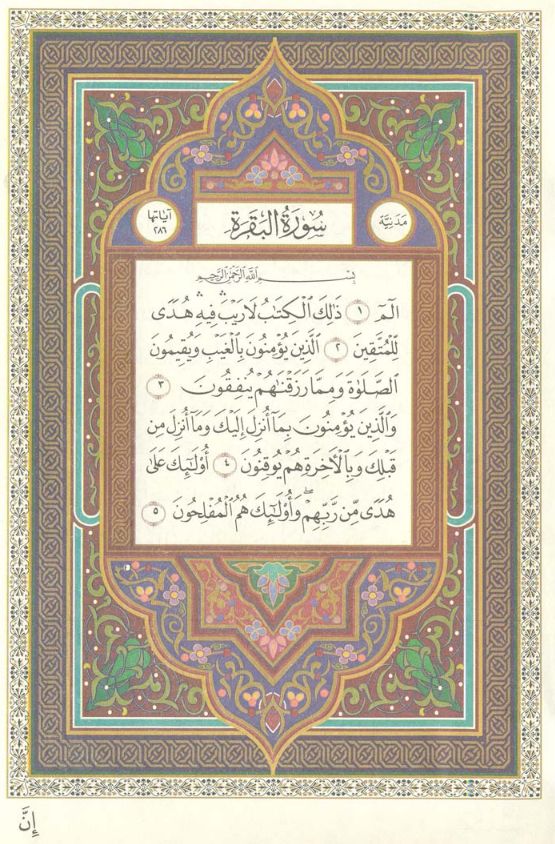 مَدَنِيَّة
سُورَةُ الْبَقَرَةِ
آيَاتُهَا ٢٨٦
بِسْمِ اللَّهِ الرَّحْمَٰنِ الرَّحِيمِ
الٓمٓ ١ ذَٰلِكَ الْكِتَٰبُ لَا رَيْبَ ۛ فِيهِ ۛ هُدًى
لِّلْمُتَّقِينَ ٢ الَّذِينَ يُؤْمِنُونَ بِالْغَيْبِ وَيُقِيمُونَ
الصَّلَوٰةَ وَمِمَّا رَزَقْنَٰهُمْ يُنفِقُونَ ٣
وَالَّذِينَ يُؤْمِنُونَ بِمَآ أُنزِلَ إِلَيْكَ وَمَآ أُنزِلَ مِن
قَبْلِكَ وَبِالْآخِرَةِ هُمْ يُوقِنُونَ ٤ أُو۟لَٰٓئِكَ عَلَىٰ
هُدًى مِّن رَّبِّهِمْ ۖ وَأُو۟لَٰٓئِكَ هُمُ الْمُفْلِحُونَ ٥
إِنَّ